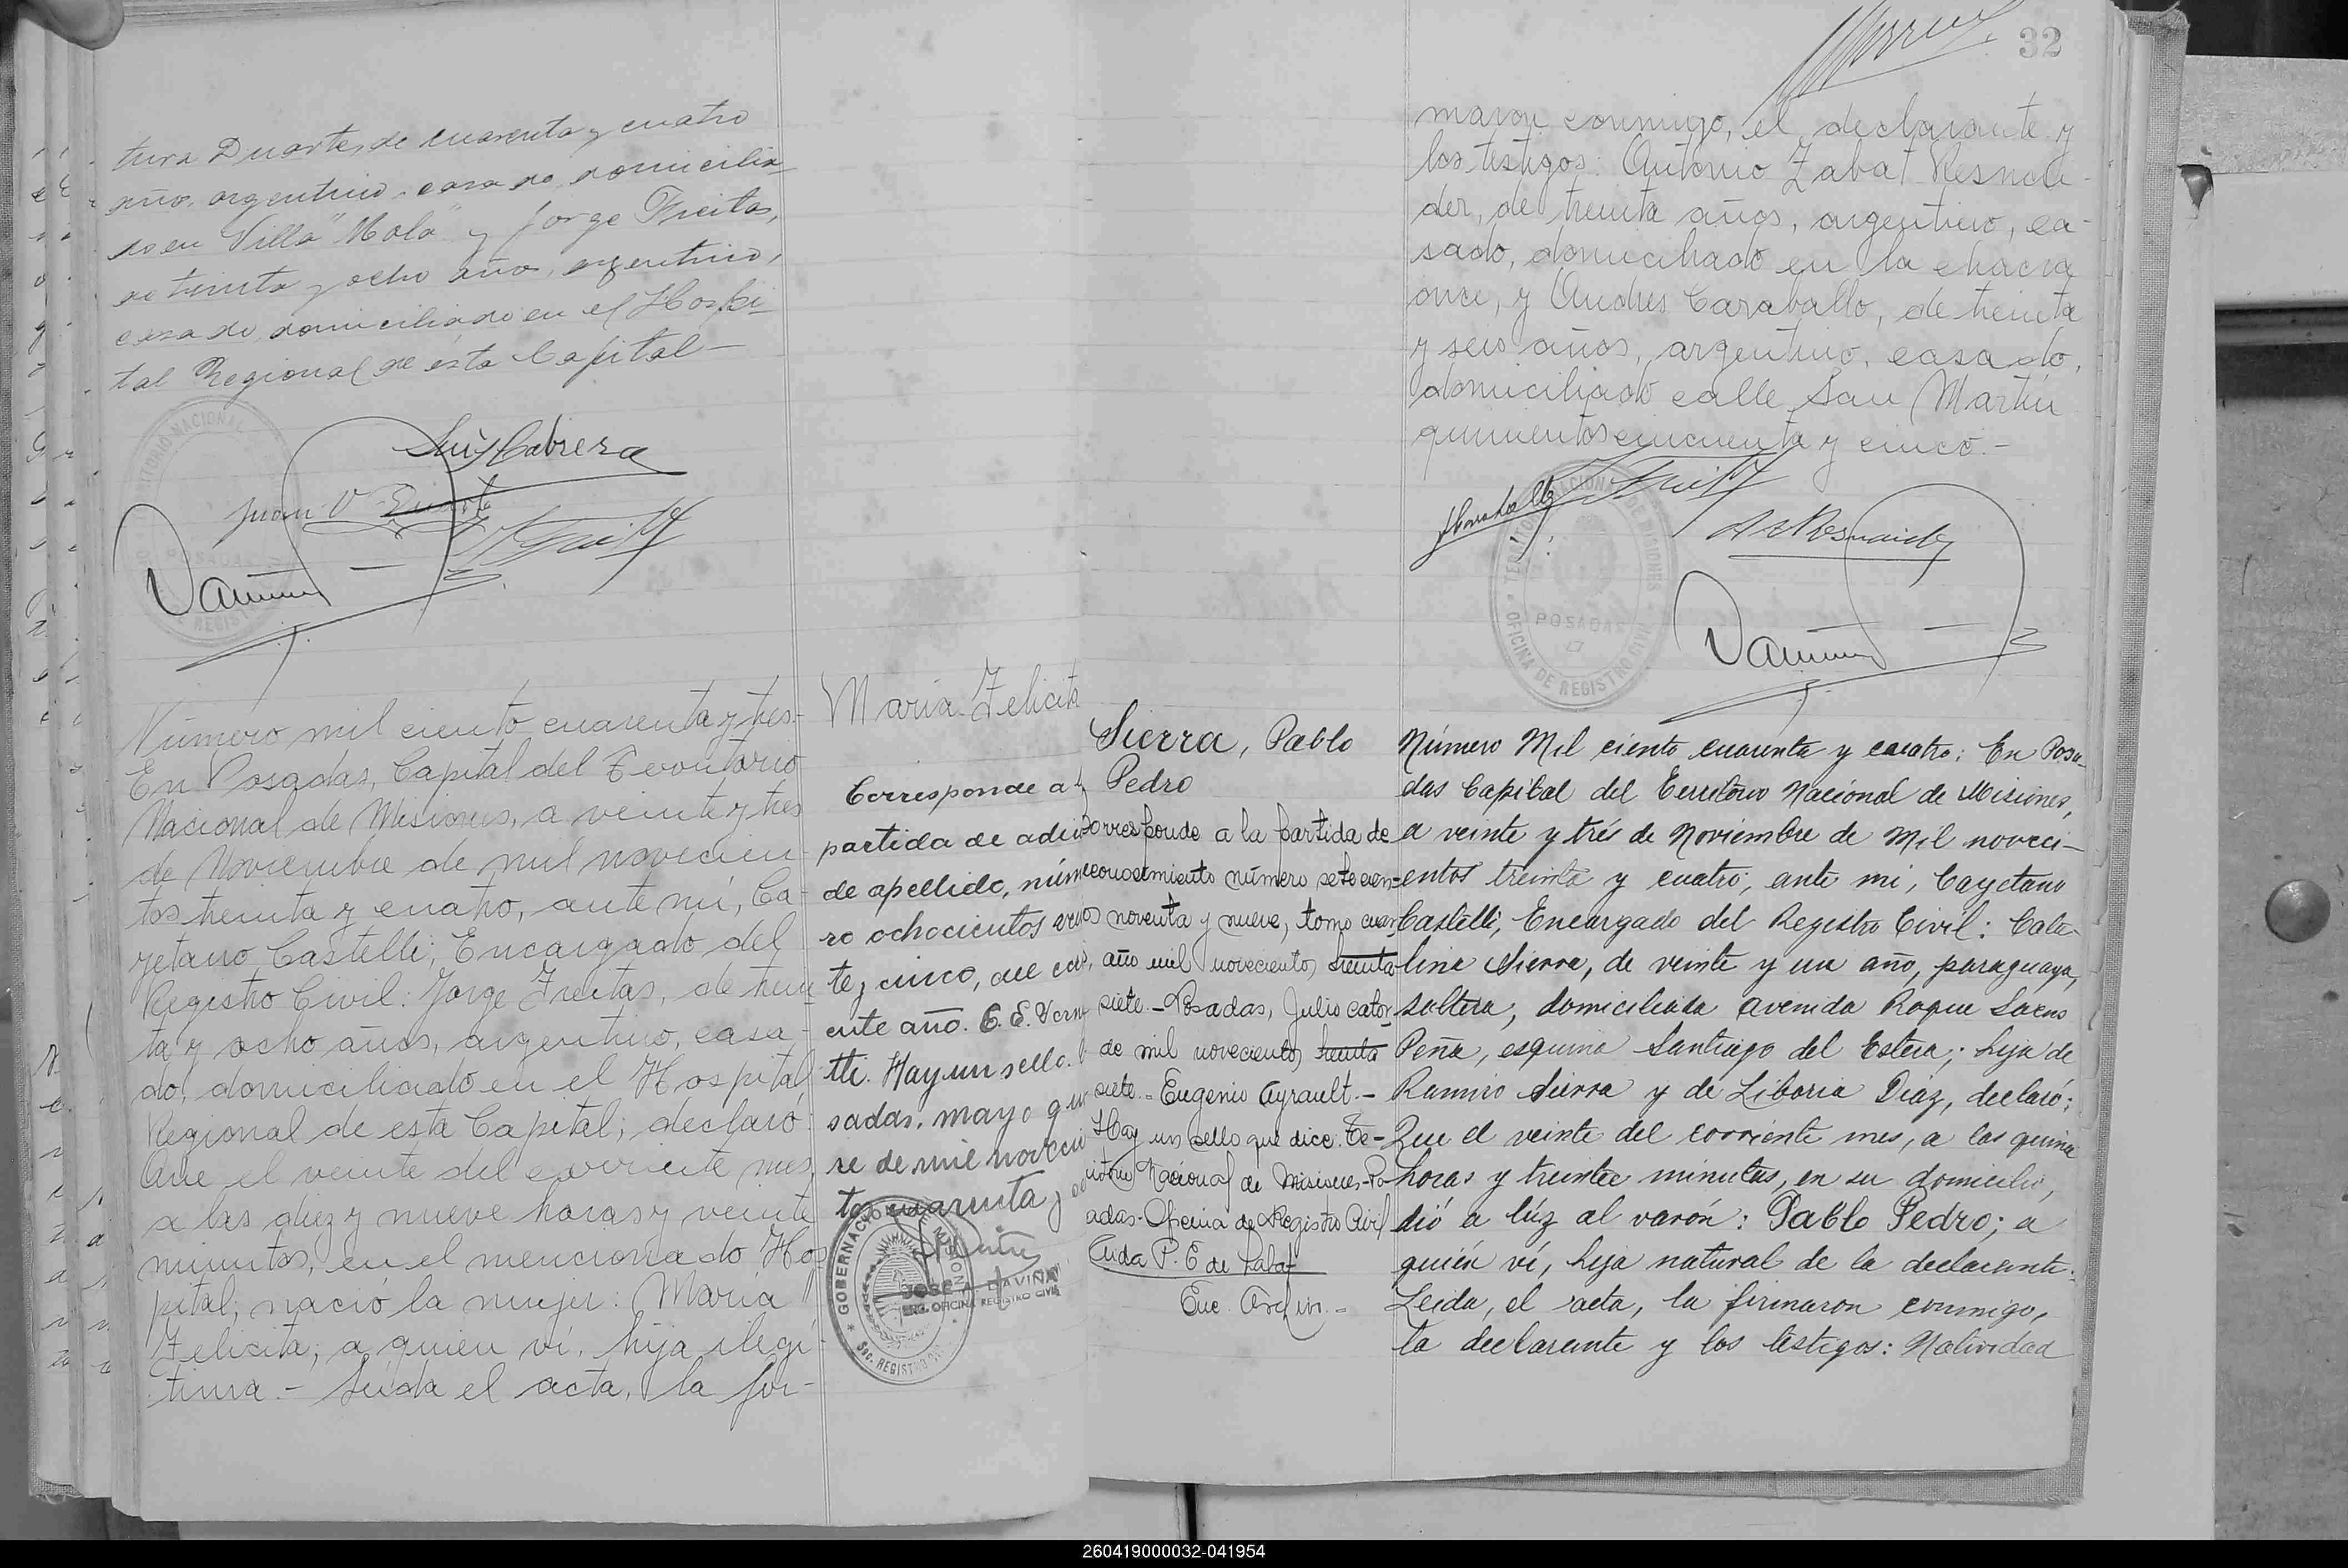 tura Duarte, de cuarenta y cuatro
año, argentino, casado, domicilia-
do en Villa "Mola" y Jorge Freitas,
de treinta y ocho año, argentino,
casado, domiciliado en el Hospi-
tal Regional de ésta Capital -
Luis Cabrera
Juan V Duarte
Número mil ciento cuarenta y tres-
En Posadas, Capital del Territorio
Nacional de Misiones, a veinte y tres
de Noviembre de mil novecien-
tos treinta y cuatro, ante mí, Ca-
yetano Castelli, Encargado del
Registro Civil: Jorge Freitas, de trein-
ta y ocho años, argentino, casa-
do, domiciliado en el Hospital
Regional de esta Capital; declaró:
Que el veinte del corriente mes,
a las diez y nueve horas y veinte
minutos, en el mencionado Hos
pital, nació la mujer: María
Felicita; a quien ví, hija ilegí-
tima.- Leída el acta, la fir-
María Felicita
Corresponde a
partida de adic
de apellido, núme
ro ochocientos
te y cinco, del
ente año. E. E.
tti. Hay un sello.
sadas, mayo
re de mil novecien
tos cuarenta y
GOBERNACION
JOSE A. DAVIÑA
ENC. OFICINA REGISTRO CIVIL
SEC. REGISTRO
32
maron conmigo, el declarante y
los testigos: Antonio Zabat Resnei-
der, de treinta años, argentino, ca-
sado, domiciliado en la chacra
once, y Andres Caraballo, de treinta
y seis años, argentino, casado,
domiciliado calle San Martín
quinientos cincuenta y cinco.-
TERRITORIO NACIONAL DE MISIONES
POSADAS
OFICINA DE REGISTRO CIVIL
Sierra, Pablo
Pedro
Corresponde a la partida de
reconocimiento número setecien-
tos noventa y nueve, tomo cuar
año mil novecientos treinta
siete.- Posadas, Julio cator-
de mil novecientos treinta
siete.- Eugenio Ayrault.-
Hay un sello que dice: Te-
rritorio Nacional de Misiones-Po-
sadas-Oficina de Registro Civil
Número Mil ciento cuarenta y cuatro: En Posa-
das Capital del Territorio Nacional de Misiones,
a veinte y trés de Noviembre de Mil noveci-
entos treinta y cuatro, ante mi, Cayetano
Castelli, Encargado del Registro Civil: Cata-
lina Sierra, de veinte y un año, paraguaya,
soltera, domiciliada Avenida Roque Saens
Peña, esquina Santiago del Estero; hija de
Ramiro Sierra y de Liboria Diaz, declaró:
Que el veinte del corriente mes, a las quince
horas y treinta minutos, en su domicilio,
dió a lúz al varón: Pablo Pedro; a
quién ví, hijo natural de la declarante.
Leida, el acta, la firmaron conmigo,
la declarante y los testigos: Natividad
260419000032-041954